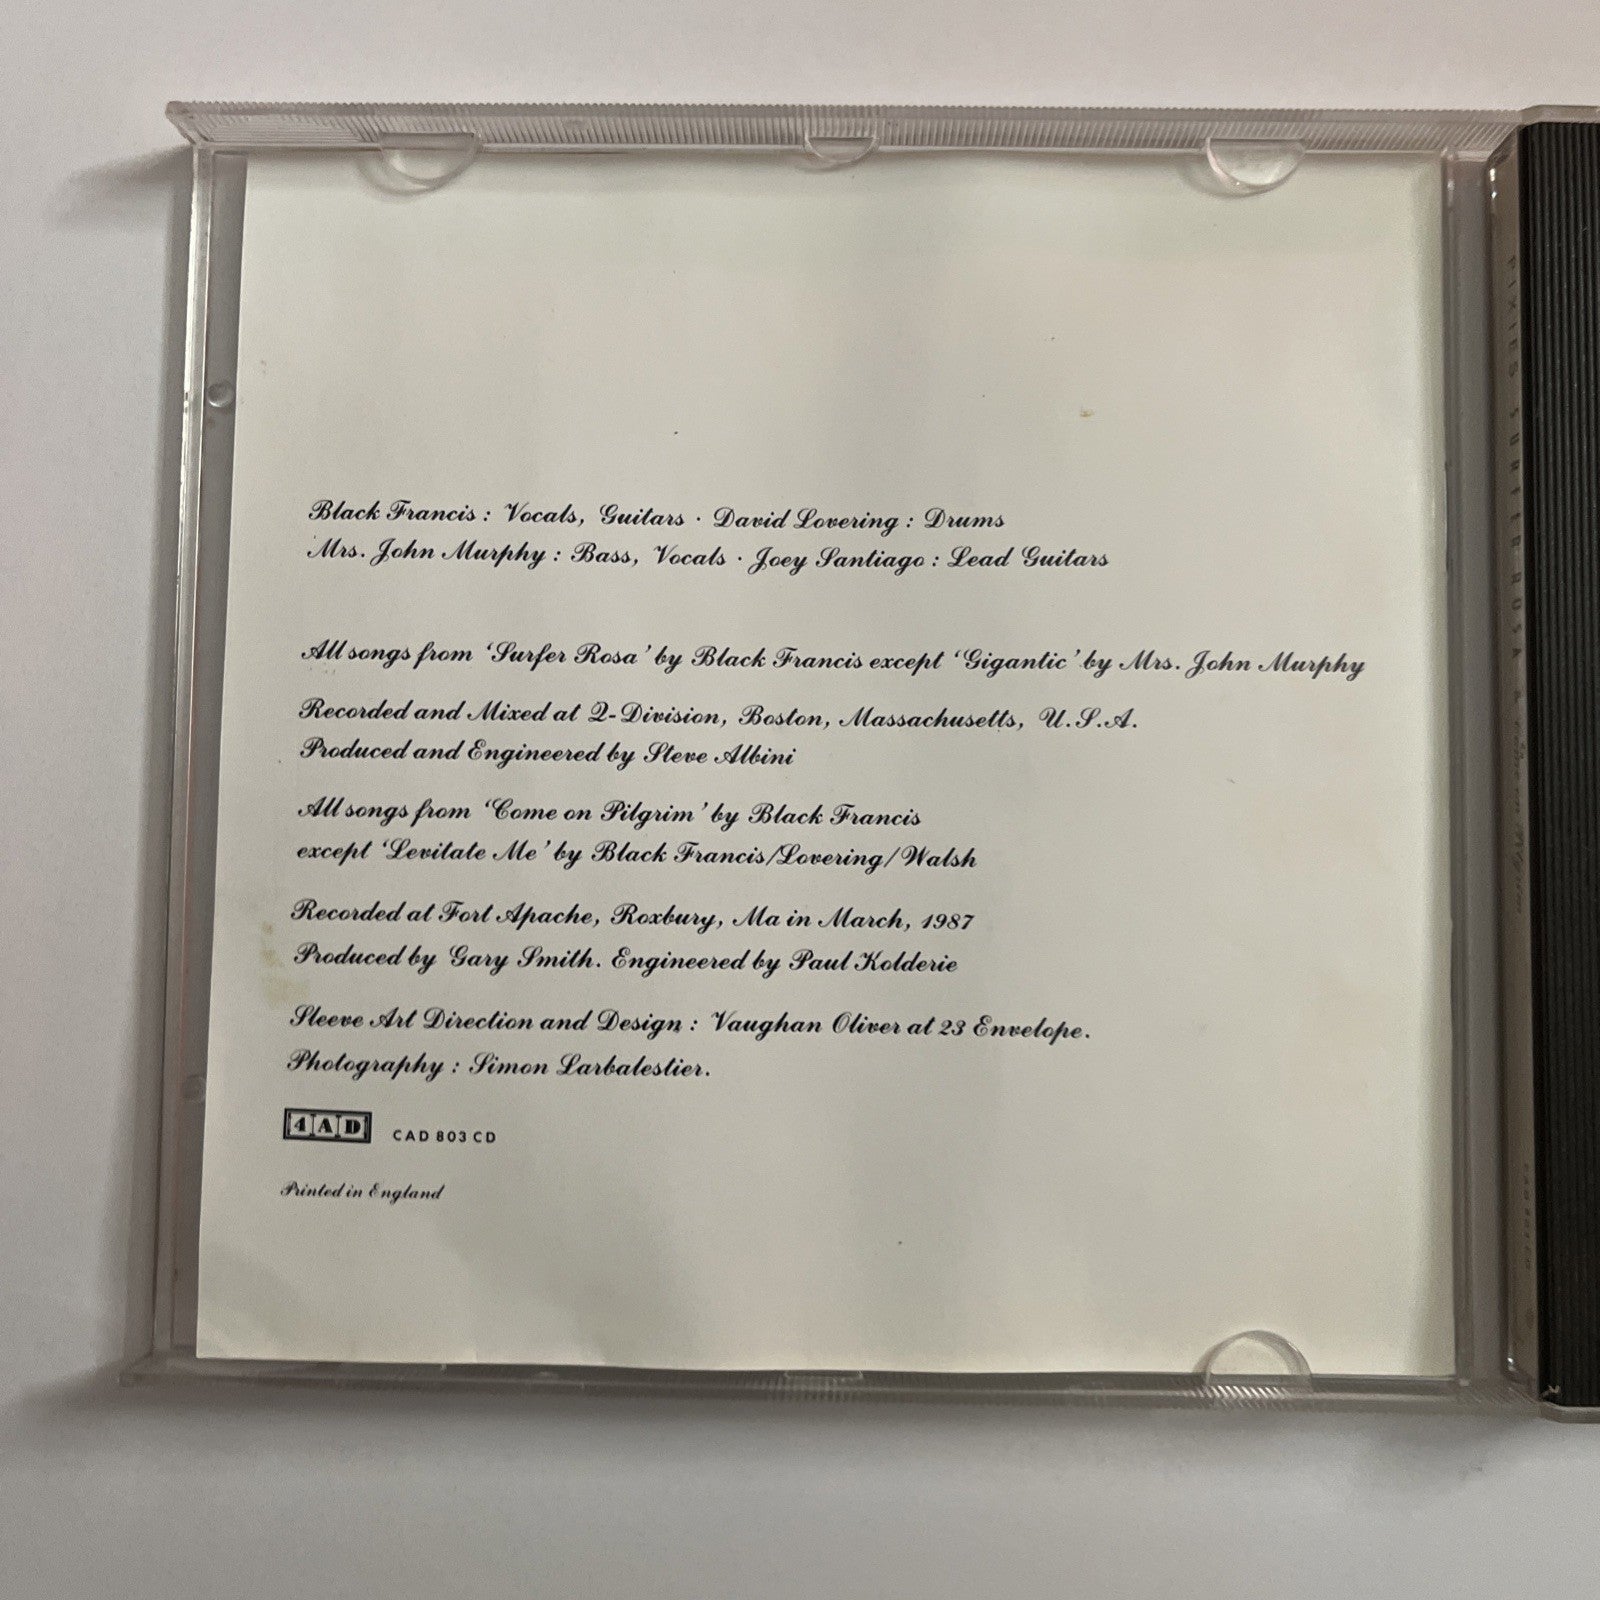 Black Francis : Vocals, Guitars · David Lovering : Drums
Mrs. John Murphy : Bass, Vocals · Joey Santiago : Lead Guitars
All songs from ‘Surfer Rosa’ by Black Francis except ‘Gigantic’ by Mrs. John Murphy
Recorded and Mixed at Q-Division, Boston, Massachusetts, U.S.A.
Produced and Engineered by Steve Albini
All songs from ‘Come on Pilgrim’ by Black Francis
except ‘Levitate Me’ by Black Francis/Lovering/Walsh
Recorded at Fort Apache, Roxbury, Ma in March, 1987
Produced by Gary Smith. Engineered by Paul Kolderie
Sleeve Art Direction and Design : Vaughan Oliver at 23 Envelope.
Photography : Simon Larbalestier.
4AD CAD 803 CD
Printed in England
PIXIES SURFER ROSA &